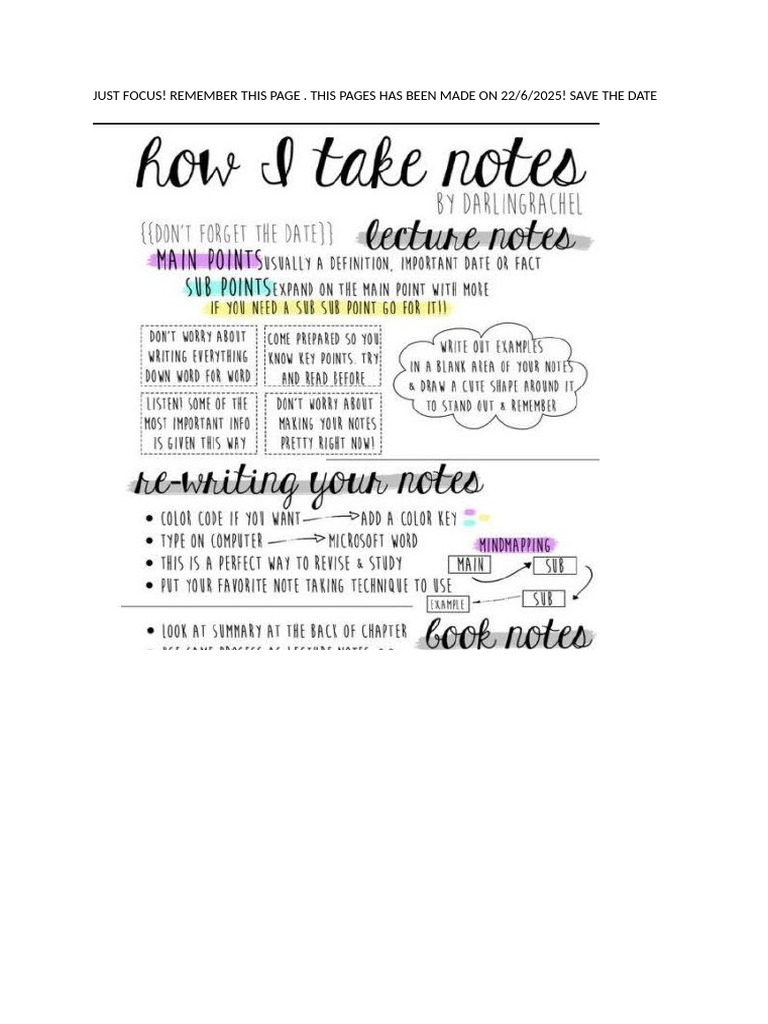 JUST FOCUS! REMEMBER THIS PAGE . THIS PAGES HAS BEEN MADE ON 22/6/2025! SAVE THE DATE
how I take notes
BY DARLINGRACHEL
{{DON'T FORGET THE DATE}}
lecture notes
MAIN POINTS USUALLY A DEFINITION, IMPORTANT DATE OR FACT
SUB POINTS EXPAND ON THE MAIN POINT WITH MORE
IF YOU NEED A SUB SUB POINT GO FOR IT!!
DON'T WORRY ABOUT
WRITING EVERYTHING
DOWN WORD FOR WORD
COME PREPARED SO YOU
KNOW KEY POINTS. TRY
AND READ BEFORE
WRITE OUT EXAMPLES
IN A BLANK AREA OF YOUR NOTES
& DRAW A CUTE SHAPE AROUND IT
TO STAND OUT & REMEMBER
LISTEN! SOME OF THE
MOST IMPORTANT INFO
IS GIVEN THIS WAY
DON'T WORRY ABOUT
MAKING YOUR NOTES
PRETTY RIGHT NOW!
re-writing your notes
• COLOR CODE IF YOU WANT → ADD A COLOR KEY
• TYPE ON COMPUTER → MICROSOFT WORD
• THIS IS A PERFECT WAY TO REVISE & STUDY
• PUT YOUR FAVORITE NOTE TAKING TECHNIQUE TO USE
MINDMAPPING
MAIN
SUB
SUB
EXAMPLE
book notes
• LOOK AT SUMMARY AT THE BACK OF CHAPTER